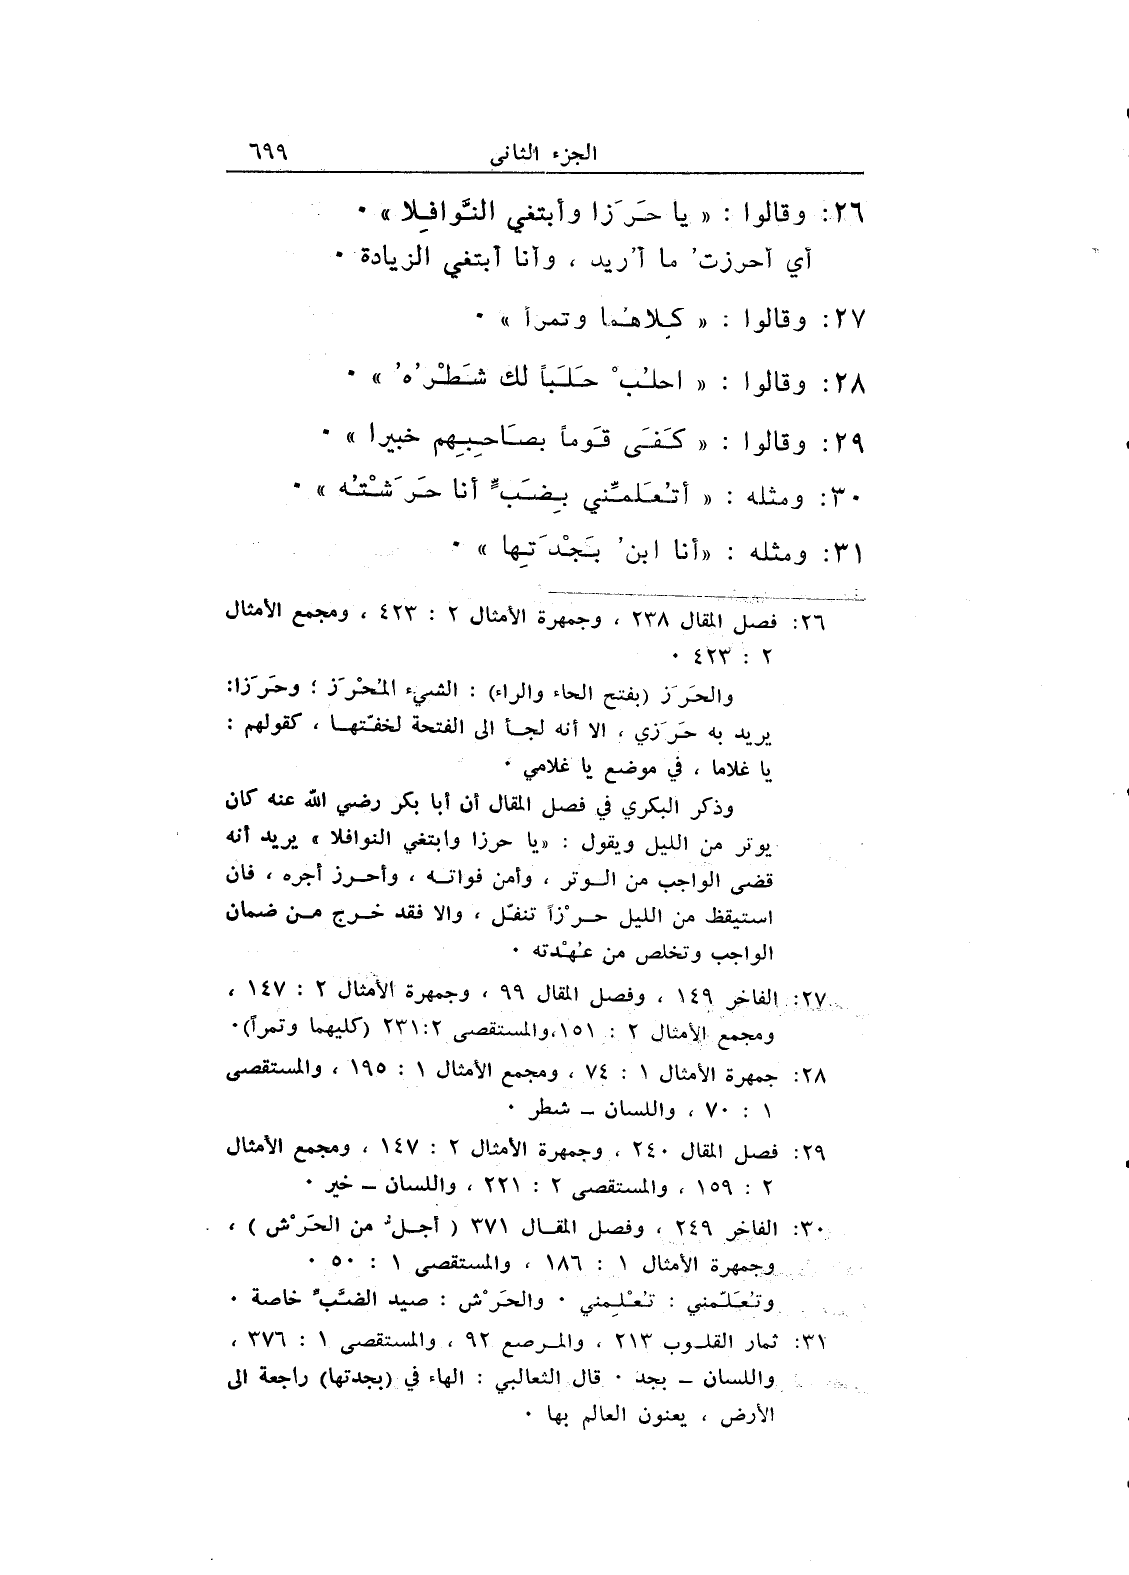 الجزء الثانى ٦٩٩
٢٦: وقالوا : « يا حَرَزا وأبتغي النَّوافِلا » ٠
أي أحرزتُ ما أُريد ، وأنا أبتغي الزيادة ٠
٢٧: وقالوا : « كِلاهُما وتمراً » ٠
٢٨: وقالوا : « احلُبْ حَلَباً لك شَطْرُهُ » ٠
٢٩: وقالوا : « كَفَى قَوماً بصَاحِبِهِم خبيرا » ٠
٣٠: ومثله : « أتُعَلِّمُني بِضَبٍّ أنا حَرَشْتُه » ٠
٣١: ومثله : «أنا ابنُ بَجْدَتِها » ٠
٢٦: فصل المقال ٢٣٨ ، وجمهرة الأمثال ٢ : ٤٢٣ ، ومجمع الأمثال
٢ : ٤٢٣ ٠
والحَرَز (بفتح الحاء والراء) : الشيء المُحْرَز ؛ وحَرَزا:
يريد به حَرَزي ، الا أنه لجأ الى الفتحة لخفّتها ، كقولهم :
يا غلاما ، في موضع يا غلامي ٠
وذكر البكري في فصل المقال أن أبا بكر رضي الله عنه كان
يوتر من الليل ويقول : «يا حرزا وابتغي النوافلا » يريد أنه
قضى الواجب من الوتر ، وأمن فواته ، وأحرز أجره ، فان
استيقظ من الليل حرْزاً تنفّل ، والا فقد خرج من ضمان
الواجب وتخلص من عُهْدته ٠
٢٧: الفاخر ١٤٩ ، وفصل المقال ٩٩ ، وجمهرة الأمثال ٢ : ١٤٧ ،
ومجمع الأمثال ٢ : ١٥١،والمستقصى ٢٣١:٢ (كليهما وتمراً)٠
٢٨: جمهرة الأمثال ١ : ٧٤ ، ومجمع الأمثال ١ : ١٩٥ ، والمستقصى
١ : ٧٠ ، واللسان – شطر ٠
٢٩: فصل المقال ٢٤٠ ، وجمهرة الأمثال ٢ : ١٤٧ ، ومجمع الأمثال
٢ : ١٥٩ ، والمستقصى ٢ : ٢٢١ ، واللسان – خبر ٠
٣٠: الفاخر ٢٤٩ ، وفصل المقال ٣٧١ ( أجلّ من الحَرْش ) ،
وجمهرة الأمثال ١ : ١٨٦ ، والمستقصى ١ : ٥٠ ٠
وتُعَلّمني : تُعْلِمني ٠ والحَرْش : صيد الضَّبِّ خاصة ٠
٣١: ثمار القلوب ٢١٣ ، والمرصع ٩٢ ، والمستقصى ١ : ٣٧٦ ،
واللسان – بجد ٠ قال الثعالبي : الهاء في (بجدتها) راجعة الى
الأرض ، يعنون العالم بها ٠